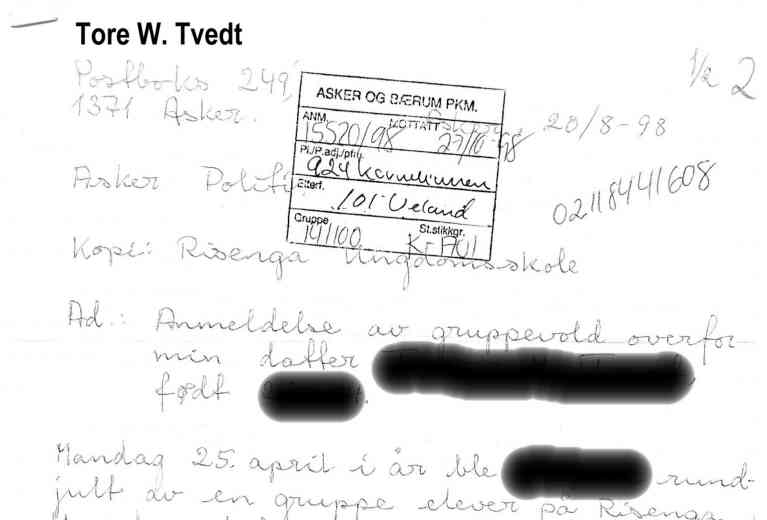 Tore W. Tvedt
Postboks 249,
1371 Asker.
1/2 2
ASKER OG BÆRUM PKM.
ANM. MOTTATT
15520/98 27/10-98
20/8-98
Pl./P.adj./pfm.
924
Asker Politi
Etterf.
101 Ueland
02118441608
Gruppe St.stikkgr.
141100
Kopi: Risenga Ungdomsskole
Ad.: Anmeldelse av gruppevold overfor
min datter
født
Mandag 25. april i år ble rund-
jult av en gruppe elever på Risenga